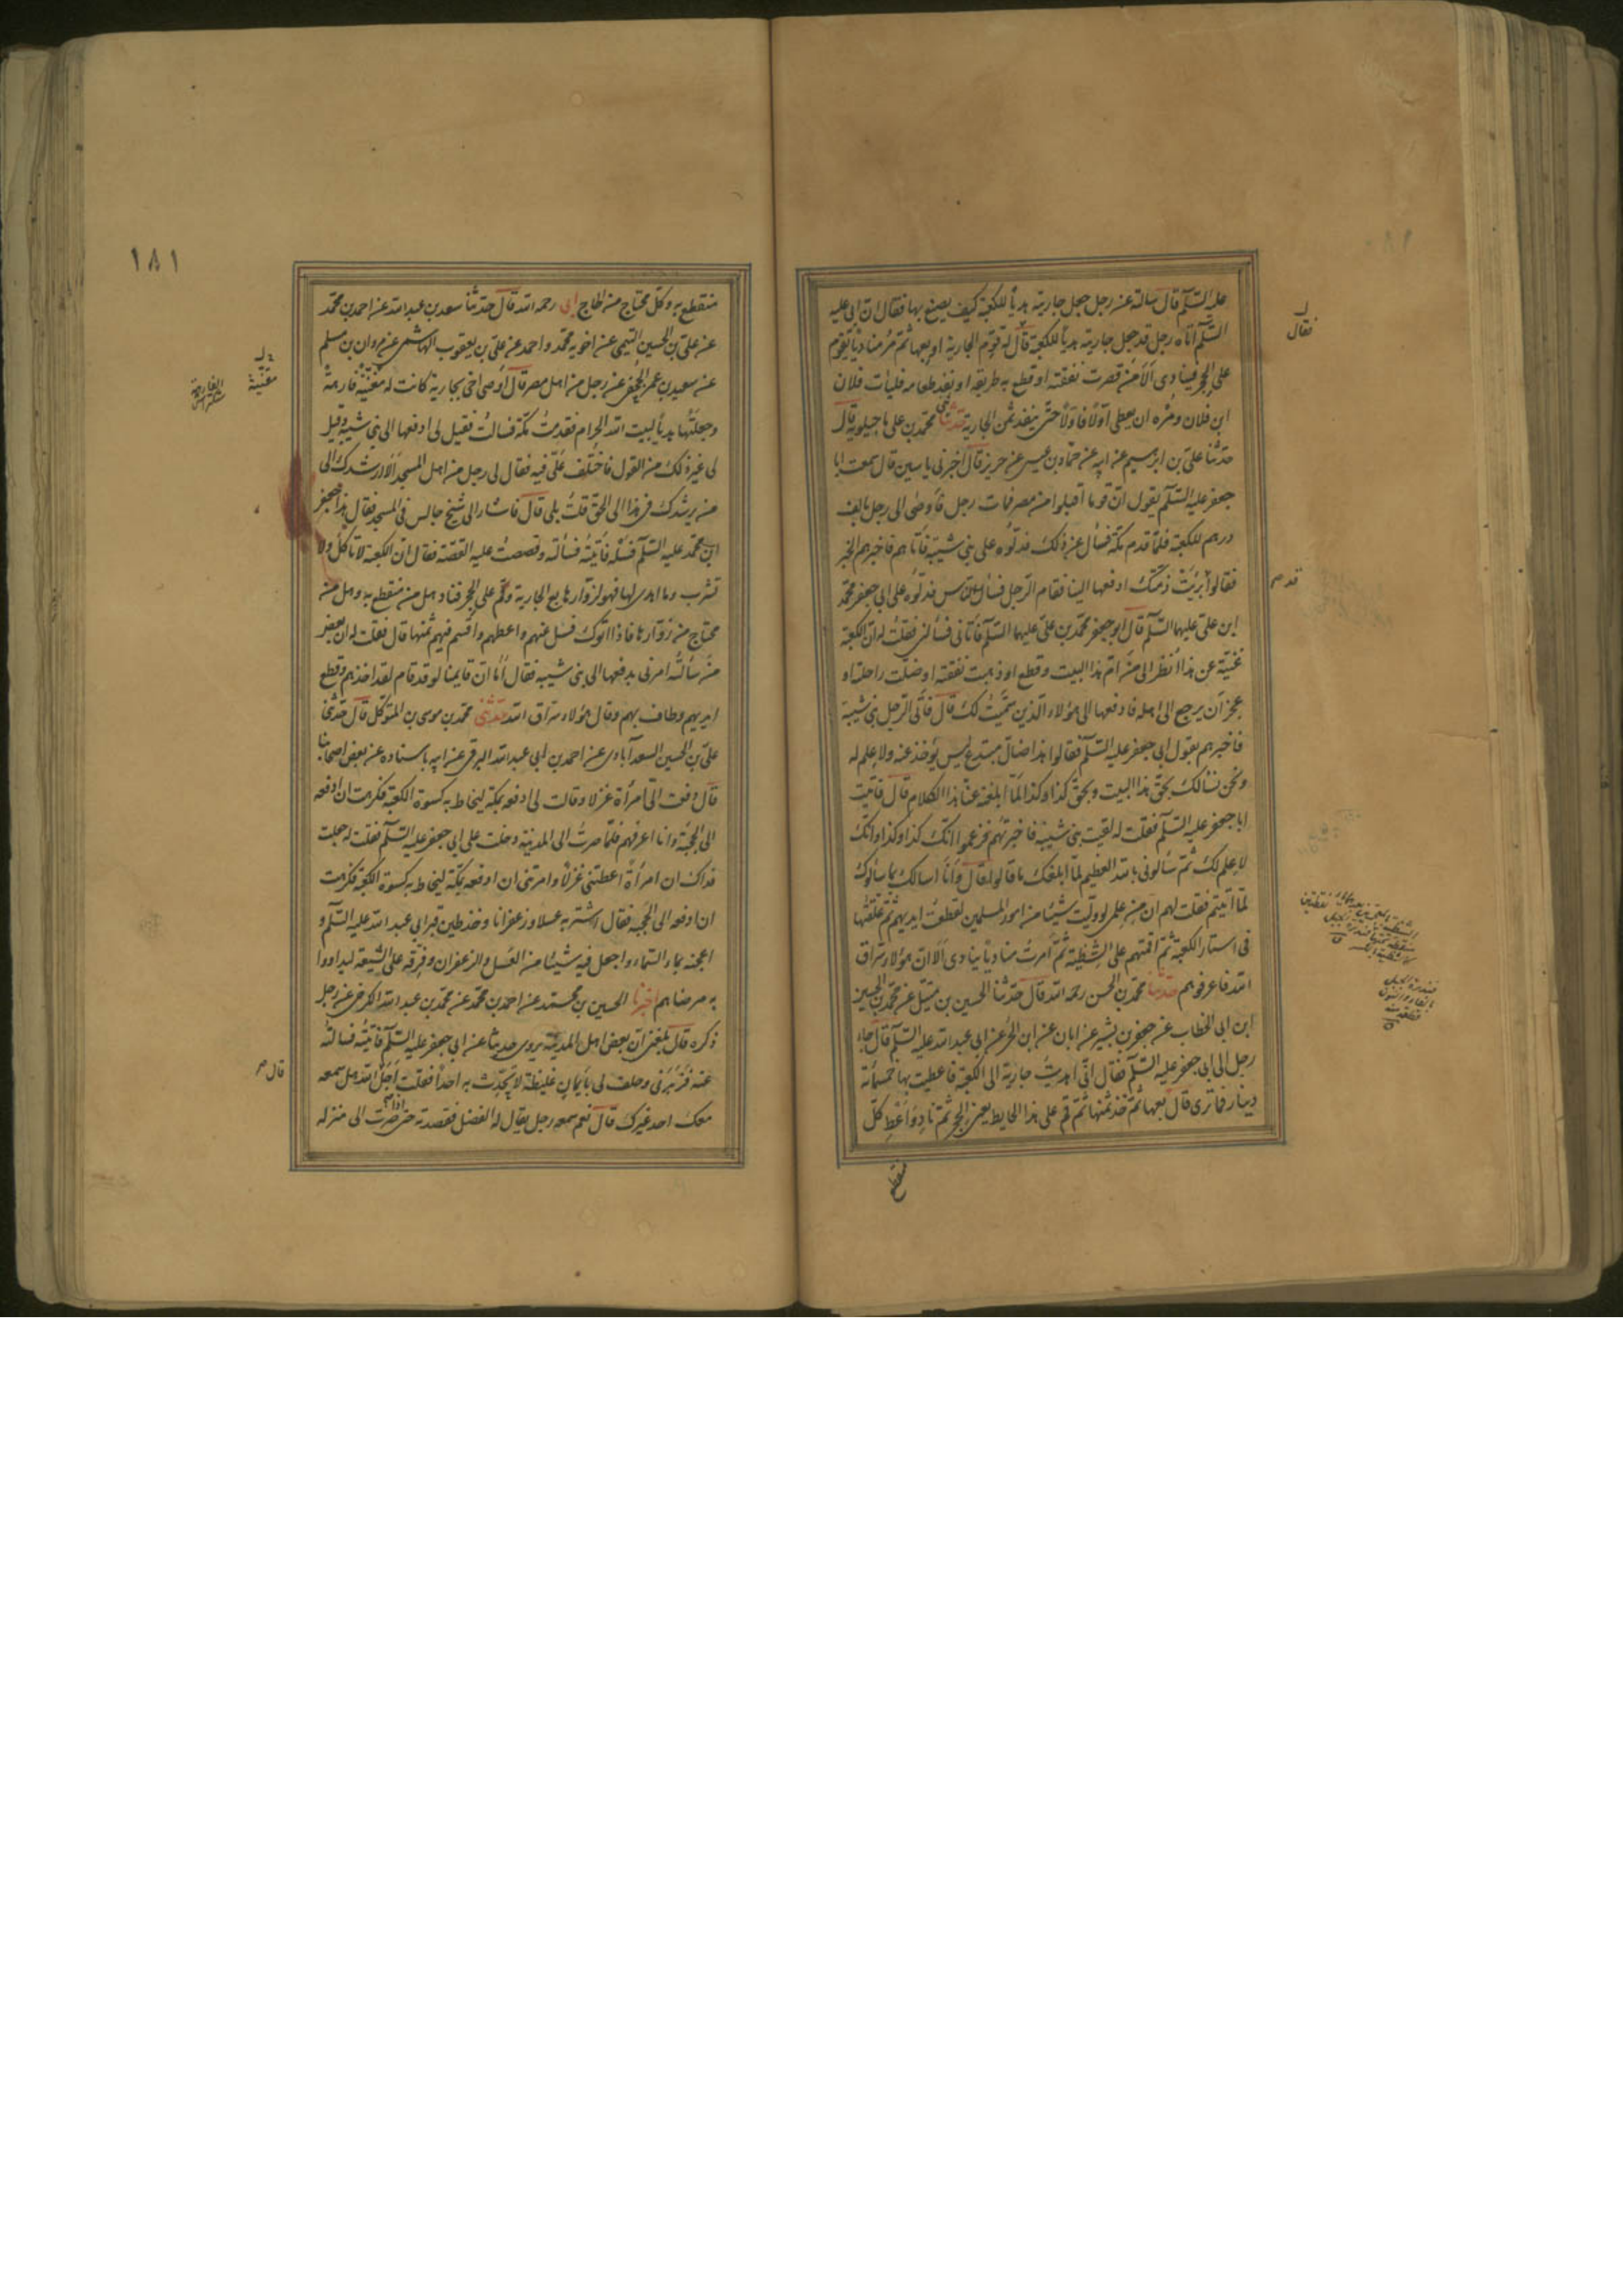 عليه السّلم قال سالته عن رجل جعل جاريته هدياً للكعبة كيف يصنع بها فقال ان ابى عليه
السّلم اتاه رجل قد جعل جاريته هدياً للكعبة قال له قوّم الجارية او بعها ثم مُر منادياً يقوم
على الحجر فينادى اَلا من قصرت نفقته او قطع به طريقه او نفد طعامه فليأت فلان
ابن فلان ومُره ان يعطى اوّلاً فاوّلاً حتى ينفد ثمن الجارية حدثنى محمّد بن على ماجيلويه قال
حدثنا على بن ابرهيم عن ابيه عن حمّاد بن عيسى عن حريز قال اخبرنى ياسين قال سمعت ابا
جعفر عليه السّلم يقول انّ قوما اقبلوا من مصر فمات رجل فاَوصٰى الى رجل بالف
درهم للكعبة فلمّا قدم مكّة فسأل عن ذلك فدلّوه على بنى شيبة فاَتاهم فاخبرهم الخبر
فقالوا بَرِئَت ذمّتك ادفعها الينا فقام الرّجل فسأل الناس فدلّوه على ابى جعفر محمّد
ابن علىّ عليهما السّلم قال ابو جعفر محمّد بن علىّ عليهما السّلم فاتانى فسألنى فقلت له انّ الكعبة
غنيّة عن هذا اُنظر الى من اَمّ هذا البيت وقطع او ذهبت نفقته او ضلّت راحلته او
عجز اَن يرجع الى اهله فادفعها الى هؤلاء الّذين سمّيتُ لك قال فاَتى الرّجل بنى شيبة
فاخبرهم بقول ابى جعفر عليه السّلم فقالوا هذا ضالّ مبتدع ليس يؤخذ عنه ولا علم له
ونحن نسالك بحقّ هذا البيت وبحقّ كذا وكذا لمّا ابلغته عنّا هذا الكلام قال فاتيت
ابا جعفر عليه السّلم فقلت له لقيت بنى شيبة فاخبرتهم فزعموا انك كذا وكذا وانّك
لا علم لك ثم سألونى بالله العظيم لمّا ابلغك ما قالوا قال وَاَنَا اسالك بما سالوك
لمّا اتيتهم فقلت لهم ان من علمى لو ولّيت شيئا من امور المسلمين لقطعت ايديهم ثم علّقتها
فى استار الكعبة ثمّ اقمتهم على الشظيّة ثمّ اَمرتُ منادياً ينادى اَلا انّ هؤلاء سرّاق
الله فاعرفوهم حدثنا محمّد بن الحسن رحمه الله قال حدّثنا الحسين بن متيل عن محمّد بن الحسين
ابن ابى الخطاب عن جعفر بن بشير عن ابان عن ابن الحرّ عن ابى عبد الله عليه السّلم قال جاء
رجل الى ابى جعفر عليه السّلم فقال انّى اهديتُ جارية الى الكعبة فاعطيت بها خمسمائة
دينار فما ترى قال بعها ثمّ خذ ثمنها ثمّ قم على هذا الحايط يعنى الحجر ثمّ نادِ وَاَعْطِ كلّ
منقطع
فقال
قد م
١٨١
منقطع به وكلّ محتاج من الحاج ابى رحمه الله قال حدّثنا سعد بن عبد الله عن احمد بن محمّد
عن علىّ بن الحسين التيمى عن اخويه محمّد واحمد عن علىّ بن يعقوب الهاشمى عن مروان بن مسلم
عن سعيد بن عمر الجعفى عن رجل من اهل مصر قال اَوصى اخى بجارية كانت له مُغنّية فارهة
وجعلتُها هدياً لبيت الله الحرام فقدمتُ مكّة فسالتُ فقيل لى ادفعها الى بنى شيبة وقيل
لى غير ذلك من القول فاختلف علىّ فيه فقال لى رجل من اهل المسجد اَلا ارشدك الى
من يرشدك فى هذا الى الحقّ قلتُ بلى قال فاشار الى شيخ جالس فى المسجد فقال هذا جعفر
ابن محمّد عليه السّلم فسَله فاَتيتُه فسألته وقصصتُ عليه القصّة فقال انّ الكعبة لا تاكل ولا
تشرب وما اهدى لها فهو لزوّارها بع الجارية وقُم على الحجر فناد هل من منقطع به وهل من
محتاج من زوّارها فاذا اتوك فسل عنهم واعطهم واقسم فيهم ثمنها قال فقلت له ان بعض
من سألتُه امرنى بدفعها الى بنى شيبه فقال اَمَا انّ قايمنا لو قد قام لقد اخذهم وقطع
ايديهم وطاف بهم وقال هؤلاء سرّاق الله حدثنى محمّد بن موسى بن المتوكّل قال حدثنا
علىّ بن الحسين السعد آبادى عن احمد بن ابى عبد الله البرقى عن ابيه باسناده عن بعض اصحابنا
قال دفعت الىّ امرأة غزلا وقالت لى ادفعه بمكّة ليخاط به كسوة الكعبة فكرهت ان ادفعه
الى الحجبة وانا اعرفهم فلمّا صرتُ الى المدينة دخلت على ابى جعفر عليه السّلم فقلت له جعلت
فداك ان امرأة اعطتنى غزلاً وامرتنى ان ادفعه بمكّة ليخاط به كسوة الكعبة فكرهت
ان ادفعه الى الحجبة فقال اشتر به عسلا وزعفرانا وخذ طين قبر ابى عبد الله عليه السّلم و
اعجنه بماء السّماء واجعل فيه شيئا من العسل والزعفران وفرّقه على الشّيعة ليداووا
به مرضاهم اخبرنا الحسين بن محمّد عن احمد بن محمّد عن محمّد بن عبد الله الكرخى عن رجل
ذكره قال بلغنى انّ بعض اهل المدينة يروى حديثا عن ابى جعفر عليه السّلم فاَتيتُه فسالته
عنه فزَبَرنى وحلف لى بِاَيمانٍ غليظة لا يحدّث به احداً فقلت اَجَل الله هل سمعه
معك احد غيرك قال نعم سمعه رجل يقال له الفضل فقصدته حتى اذا صرت الى منزله
مغنّية
قال م